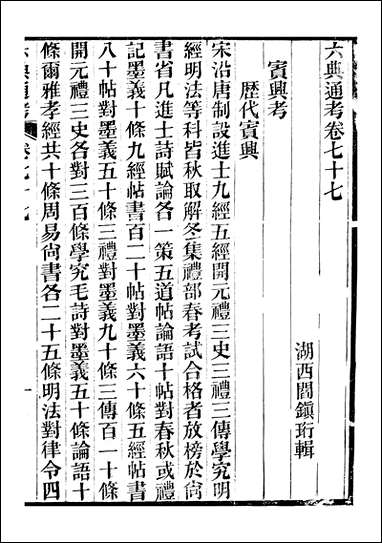 六典通考卷七十七
湖西閻鎮珩輯
賓興考
歴代賓興
宋沿唐制設進士九經五經開元禮三史三禮三傳學究明
經明法等科皆秋取解冬集禮部春考試合格者放榜於尙
書省凡進士詩賦論各一策五道帖論語十帖對春秋或禮
記墨義十條九經帖書百二十帖對墨義六十條五經帖書
八十帖對墨義五十條三禮對墨義九十條三傳百一十條
開元禮三史各對三百條學究毛詩對墨義五十條論語十
條爾雅孝經共十條周易尙書各二十五條明法對律令四
六典通考
卷七十七
一